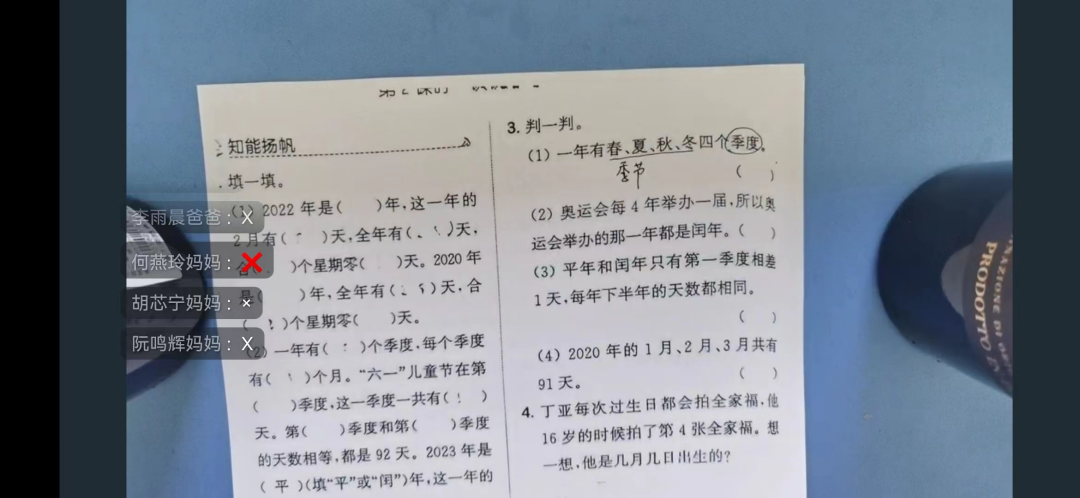 第2课时
知能扬帆
填一填。
(1) 2022年是(  )年,这一年的
2月有(  )天,全年有(  )天,
合(  )个星期零(  )天。2020年
是(  )年,全年有(  )天,合
(  )个星期零(  )天。
(2) 一年有(  )个季度,每个季度
有(  )个月。“六一”儿童节在第
(  )季度,这一季度一共有(  )
天。第(  )季度和第(  )季度
的天数相等,都是92天。2023年是
( 平 )(填“平”或“闰”)年,这一年的
3. 判一判。
(1) 一年有春、夏、秋、冬四个季度。
季节
(  )
(2) 奥运会每4年举办一届,所以奥
运会举办的那一年都是闰年。(  )
(3) 平年和闰年只有第一季度相差
1天,每年下半年的天数都相同。
(  )
(4) 2020年的1月、2月、3月共有
91天。(  )
4. 丁亚每次过生日都会拍全家福,他
16岁的时候拍了第4张全家福。想
一想,他是几月几日出生的?
李雨晨爸爸:X
何燕玲妈妈:❌
胡芯宁妈妈:×
阮鸣辉妈妈:X
NAZIONE DI
PRODOTTO